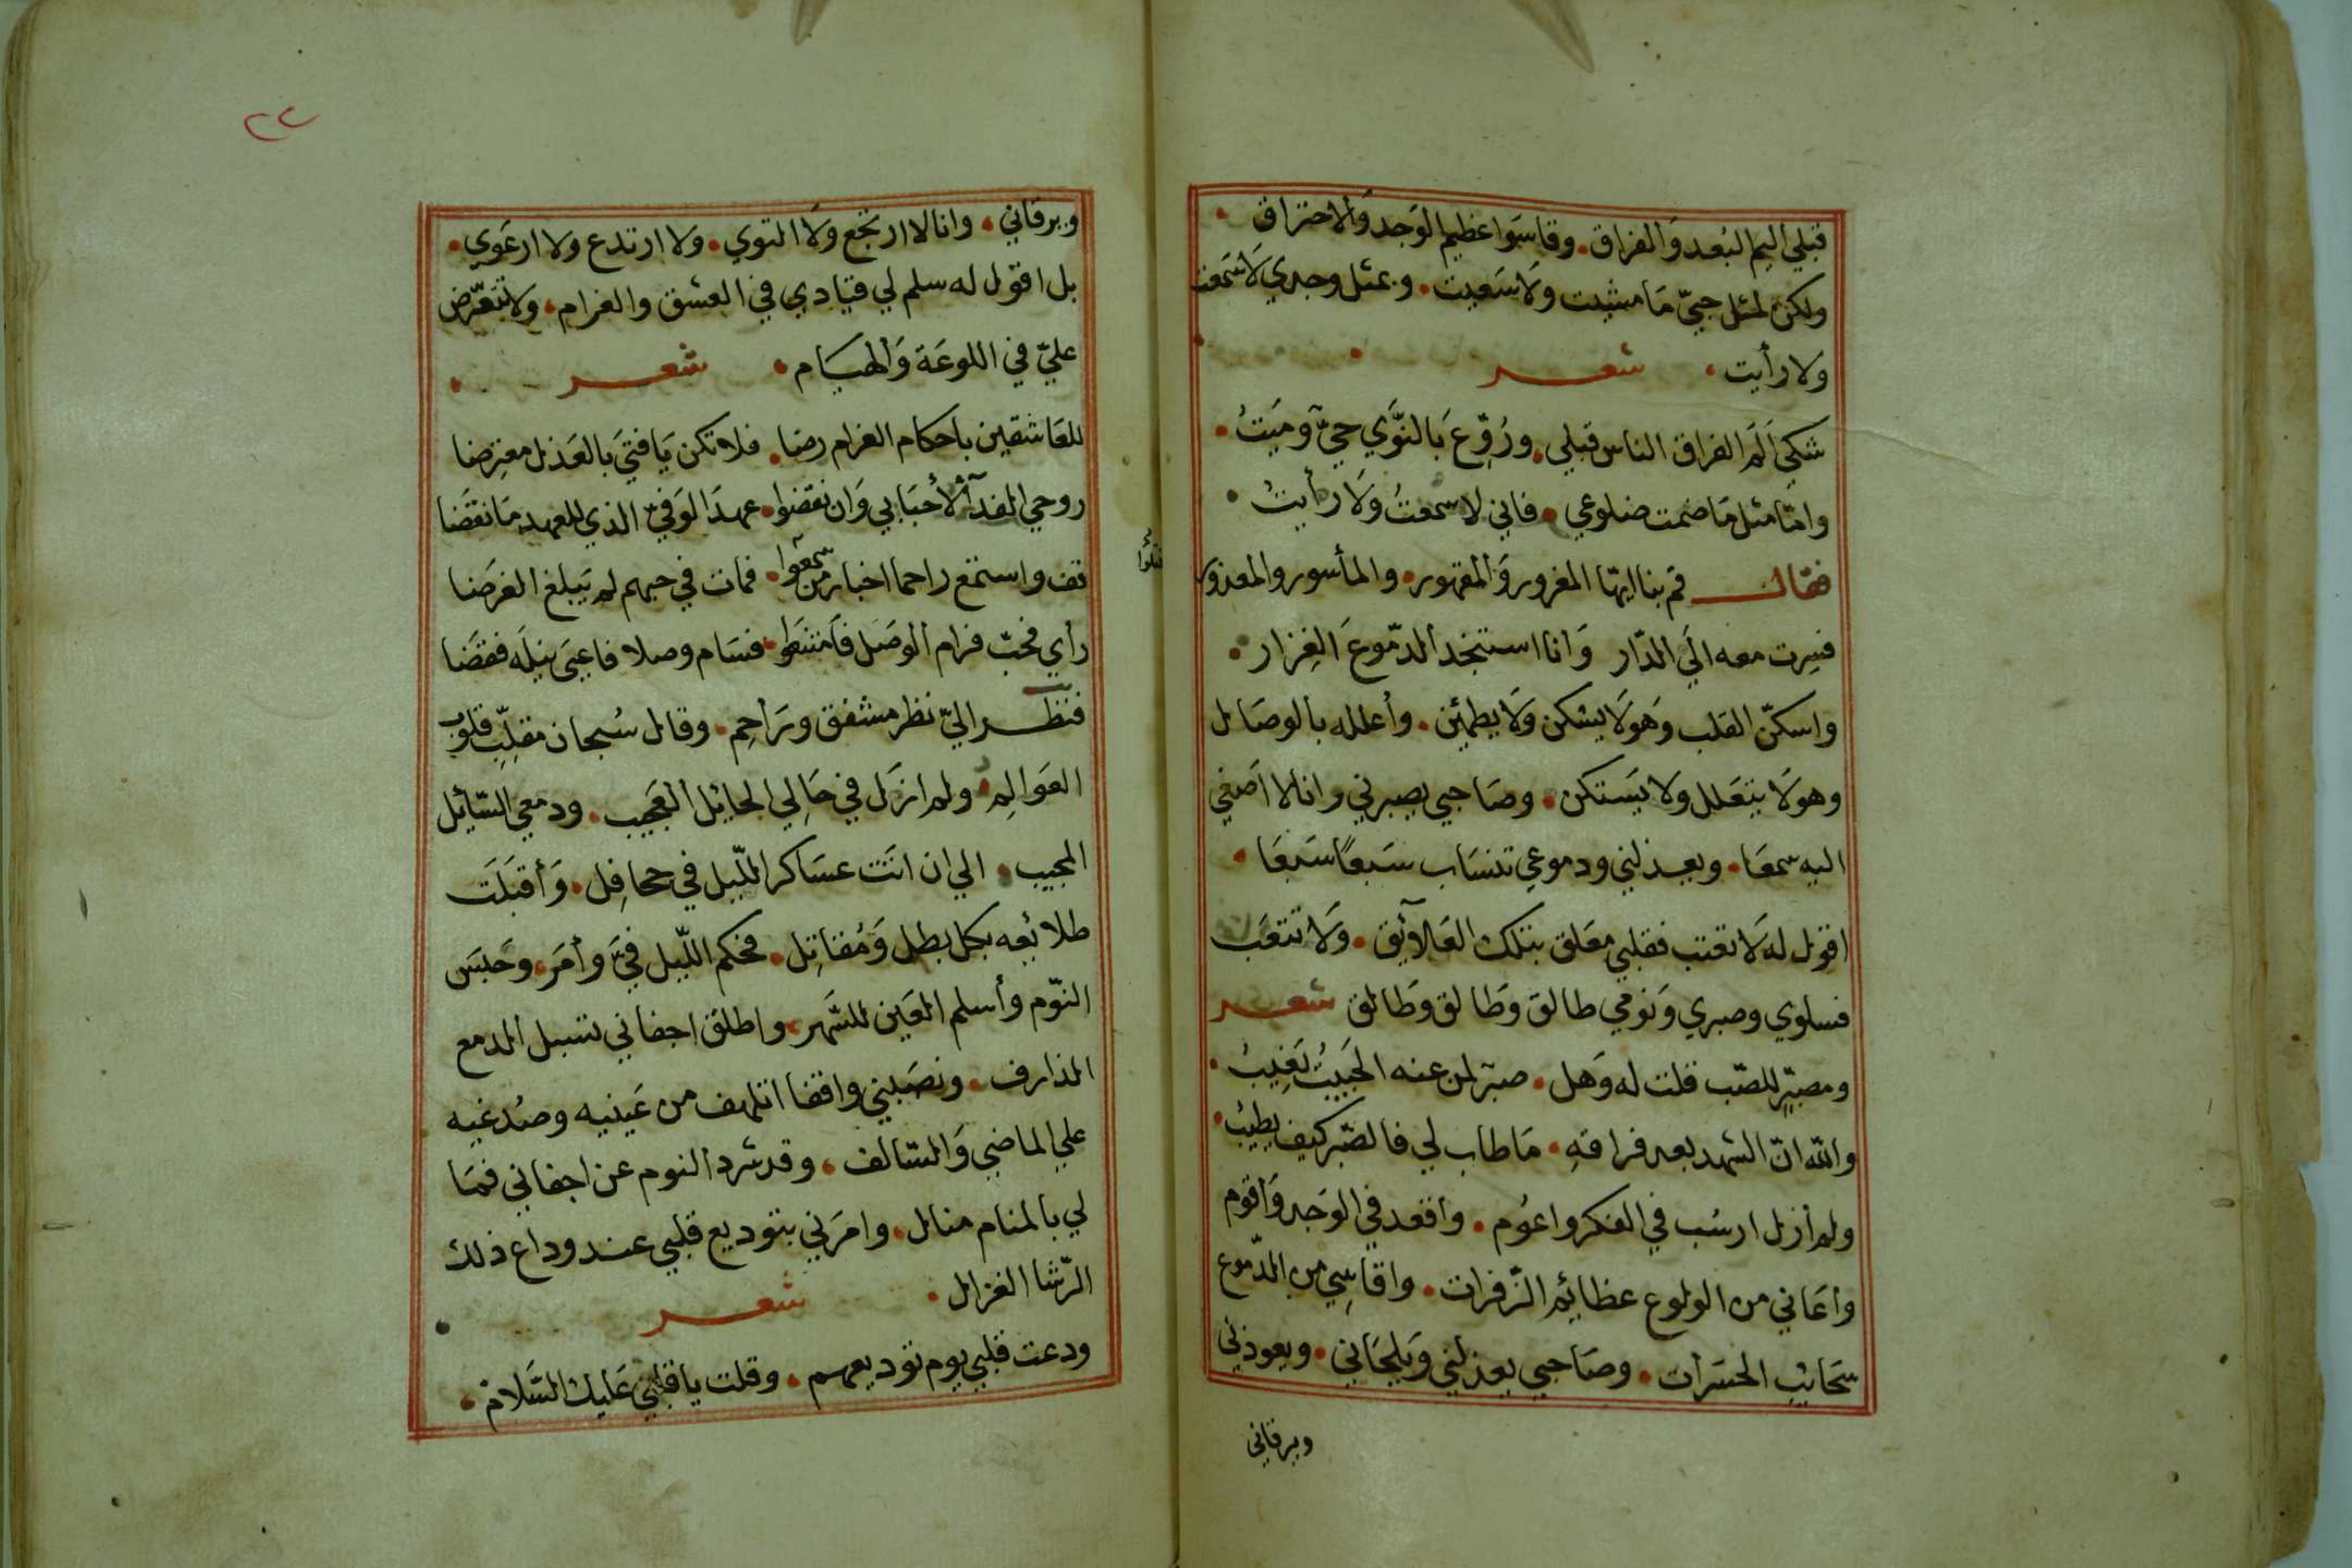 قبلي اليم البُعد وَالفراق. وقاسَوا عظيم الوَجد وَالاحتراق.
ولكن لمثل حبيّ مَا مشيت ولَا سَعيت. وبمثل وجدي لَا سَمعت
ولا رأيت. شعر
شكىَ اَلَم الفراق الناس قبلي. ورُوّعَ بَالنّوَي حيّ وميَتُ.
وامّا مثل مَا ضمت ضلوعي. فاني لا سمعتُ وَلَا رأيتُ.
فقال قم بنا ايهّا المغرور وَالمقهور. والمأسور والمعذور
فسِرت معه الَي الدّار وَانا استنجد الدمّوعَ الغِزار.
واسكنّ القلب وَهو لَا يسْكن وَلَا يطمئِن. وأعلله بالوصَال
وهو لَا يتعَلل ولا يَستكن. وصَاحبي يصبرني وانا لا اَصغي
اليه سمعَا. ويعذلني ودموعي تنسَاب سَبعًا سَبعَا.
اقول له لَا تعتب فقلبي معَلق بتلك العَلَائق. وَلَا تتعَب
فسلوي وصبري وَنومي طالق وَطالق وَطالق شعر
ومصبّرٍ للصّب قلت له وَهل. صبرٌ لمن عنه الحَبيبُ يَغِيبُ.
واللّه انّ الشهد بعد فراقهِ. مَا طاب لي فالصّبر كيف يطيبُ.
ولم أزل ارسُب في الفكر واعوُم. واقعد في الوَجد وَاقوم
وأعَاني من الولوع عظائِم الزّفرات. واقاسِي من الدّموع
سَحائِب الحسَرات. وصَاحبي يعذلني وَيلحَاني. ويعوذني
ويرقاني
٢٢
ويرقاني. وانا لا ارتجع ولَا التوي. ولا ارتدع ولا ارعَوي.
بل اقول له سلم لي قيادي في العشق والغرام. وَلا تتعَرّض
عليّ في اللوعَة وَالهيَام. شعر
للعَاشقين باحكام الغرام رضا. فلا تكن يَا فتيَ بالعَذل معترِضا
روحي الفدآ لأحبَابي وَان نقضوا. عهدَ الوَفيّ الذي للعهد مَا نقضَا
قف واستمع راحما اخبار من سمعوا. فمات في حبهم لم يَبلغ الغرَضا
رأي فحبّ فرام الوصَل فَامتنعوا. فسَام وصلا فاعيىَ نيلَه فقضَا
فنظَر اليّ نظر مشفق ورَاحِم. وقال سُبحان مقلّبِ قلوب
العوَالِم. ولم ازَل في حَالِي الحايل العَجيب. ودمعي السّائل
المجيب. الي ان اتَت عسَاكر اللّيل في جحافِل. وَأقبَلَت
طلائعه بكل بطل وَمُقاتِل. فحكم اللّيل فيّ وأمَر. وحَبسَ
النوّم وأسلم العَين للسَّهر. واطلق اجفاني لتسبل المدمع
الذارف. ونصَبني واقفا اتلهف من عَينيه وصُدغيه
علي الماضي وَالسّالف. وقد شرد النوم عن اجفاني فمَا
لي بالمنام منال. وامرَني بتوديع قلبي عند وداع ذلك
الرّشا الغزال. شعر
ودعت قلبي يوم توديعهم. وقلت يا قلبي عَليك السَّلَام.